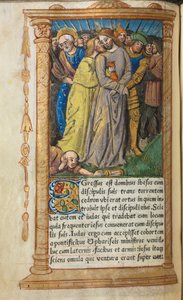 Gressus est dominus ihesus cum
discipulis suis trans torrentem
cedron ubi erat ortus in quem in
troiuit ipse et discipuli eius. Scie
bat autem et iudas qui tradebat eum locum
quia frequenter iesus conuenerat cum discipulis
suis illuc Iudas ergo cum accepisset cohortem
a pontificibus et phariseis ministros venit illuc
cum laternis et facibus et armis iesus itaque
sciens omnia que ventura erant super eum